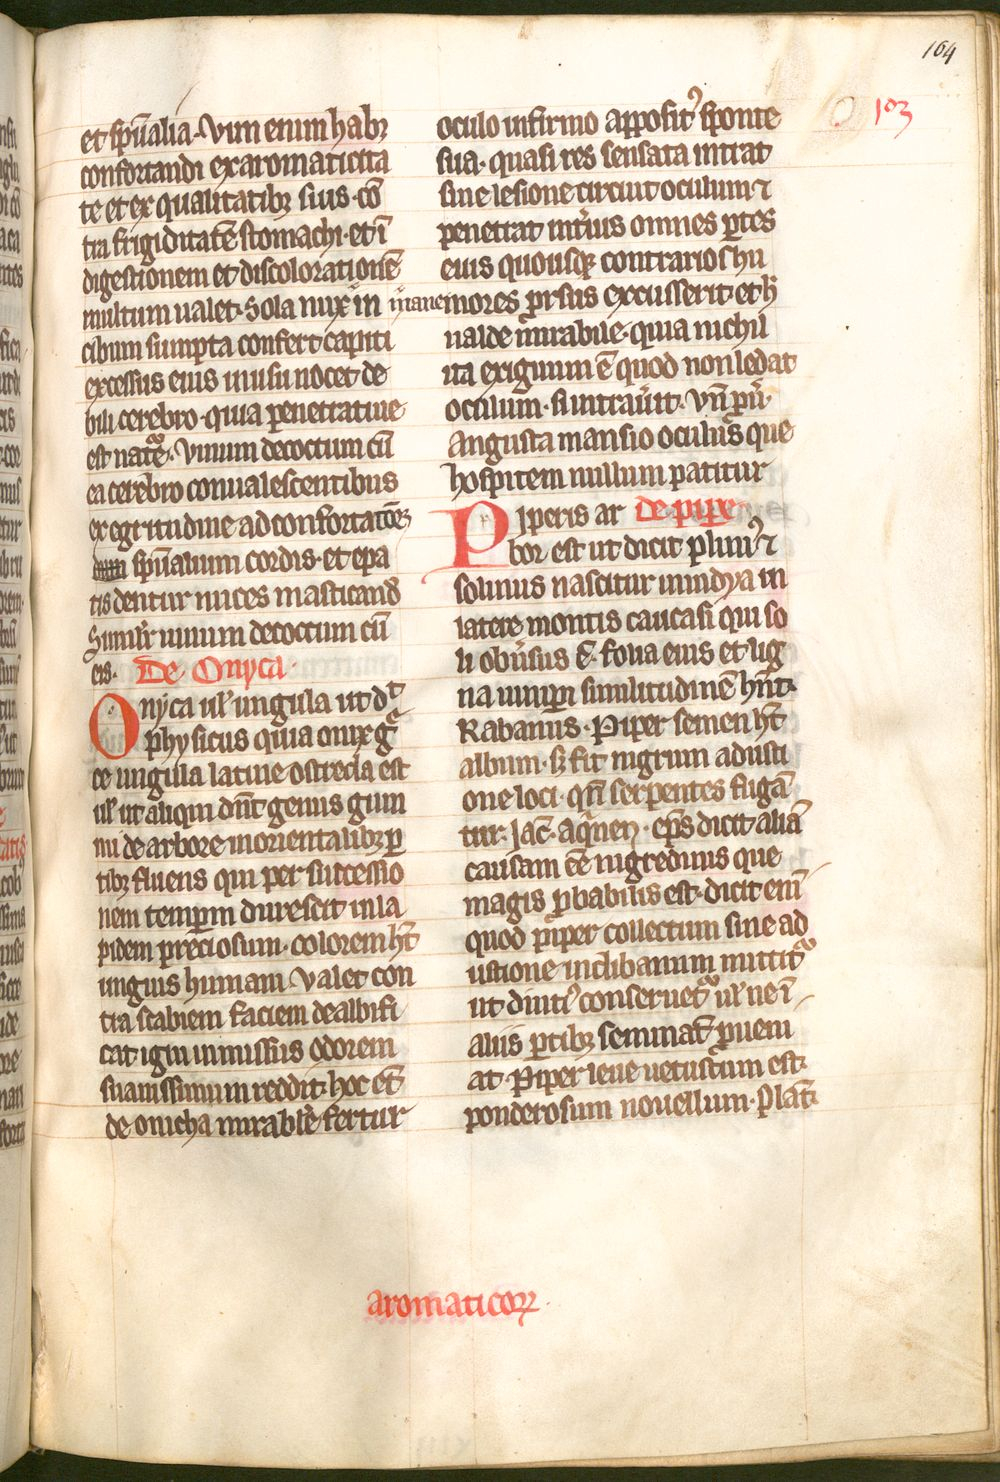 164
103
et sp̄ualia. Vim enim habꝫ
confortandi ex aromaticita
te et ex qualitatibꝫ suis. cō
tra frigiditatē stomachi. et ī
digestionem et discolorationē
multum ualet. Sola nux in mane
cibum sumpta confert capiti
excessus eius in usu nocet de
bili cerebro. quia penetratiue
est nat̄e. Vinum decoctum cū
ea cerebro conualescentibus
ex egritudine ad confortatōeꝫ
sp̄ualium cordis. et epa
tis dentur nuces masticand
Similr̄ uinum decoctum cū
eis. De Onyca
Onyca ul̓ ungula ut dt
physicus quia onix gͣ
ce ungula latine ostrecla est
ul̓ ut aliqui dn̄t genus gum
mi de arbore in orientalibꝫ ꝑ
tibꝫ fluens qui per successio
nem tempꝝm durescit in la
pidem preciosum. colorem hт̄
unguis humani. Valet con
tra scabiem faciem dealbifi
cat igni inmissus odorem
suauissimum reddit. hoc et̄
de onicha mirabile fertur
oculo infirmo apposit᷒ sponte
sua. quasi res sensata intrat
sine lesione circuit oculum ⁊
penetrat int̓ius omnes ꝑtes
eius quousqꝫ contrarios hu
mores ꝓrsus excusserit et hͦ
ualde mirabile. quia nichil
ita exiguum ē quod non ledat
oculum. si intrau̓it. Vn̄ pu̓.
Angusta mansio oculus que
hospitem nullum patitur
Piperis ar de pipe
bor est ut dicit pliniꝰ ⁊
solinus nascitur in indya in
latere montis caucasi qui so
li obu̓sus ē. folia eius et lig
na iunipi similitudinē hn̄t.
Rabanus. Piper semen hт̄
album. sꝫ fit nigrum adusti
one loci. qn̄ serpentes fugā
tur. Jac̄. aq̄nen̄. ep̄s dicit aliā
causam ēē nigredinis que
magis ꝓbabilis est. dicit enī
quod piper collectum sine ad
ustione in clibanum mittitᷣ
ut diuti᷒ conseruetᷣ ul̓ ne ī
aliis ꝑtibꝫ seminat̄ ꝓueni
at. Piper leue uetustum est.
ponderosum nouellum. Plat̄.
aromaticoꝝ